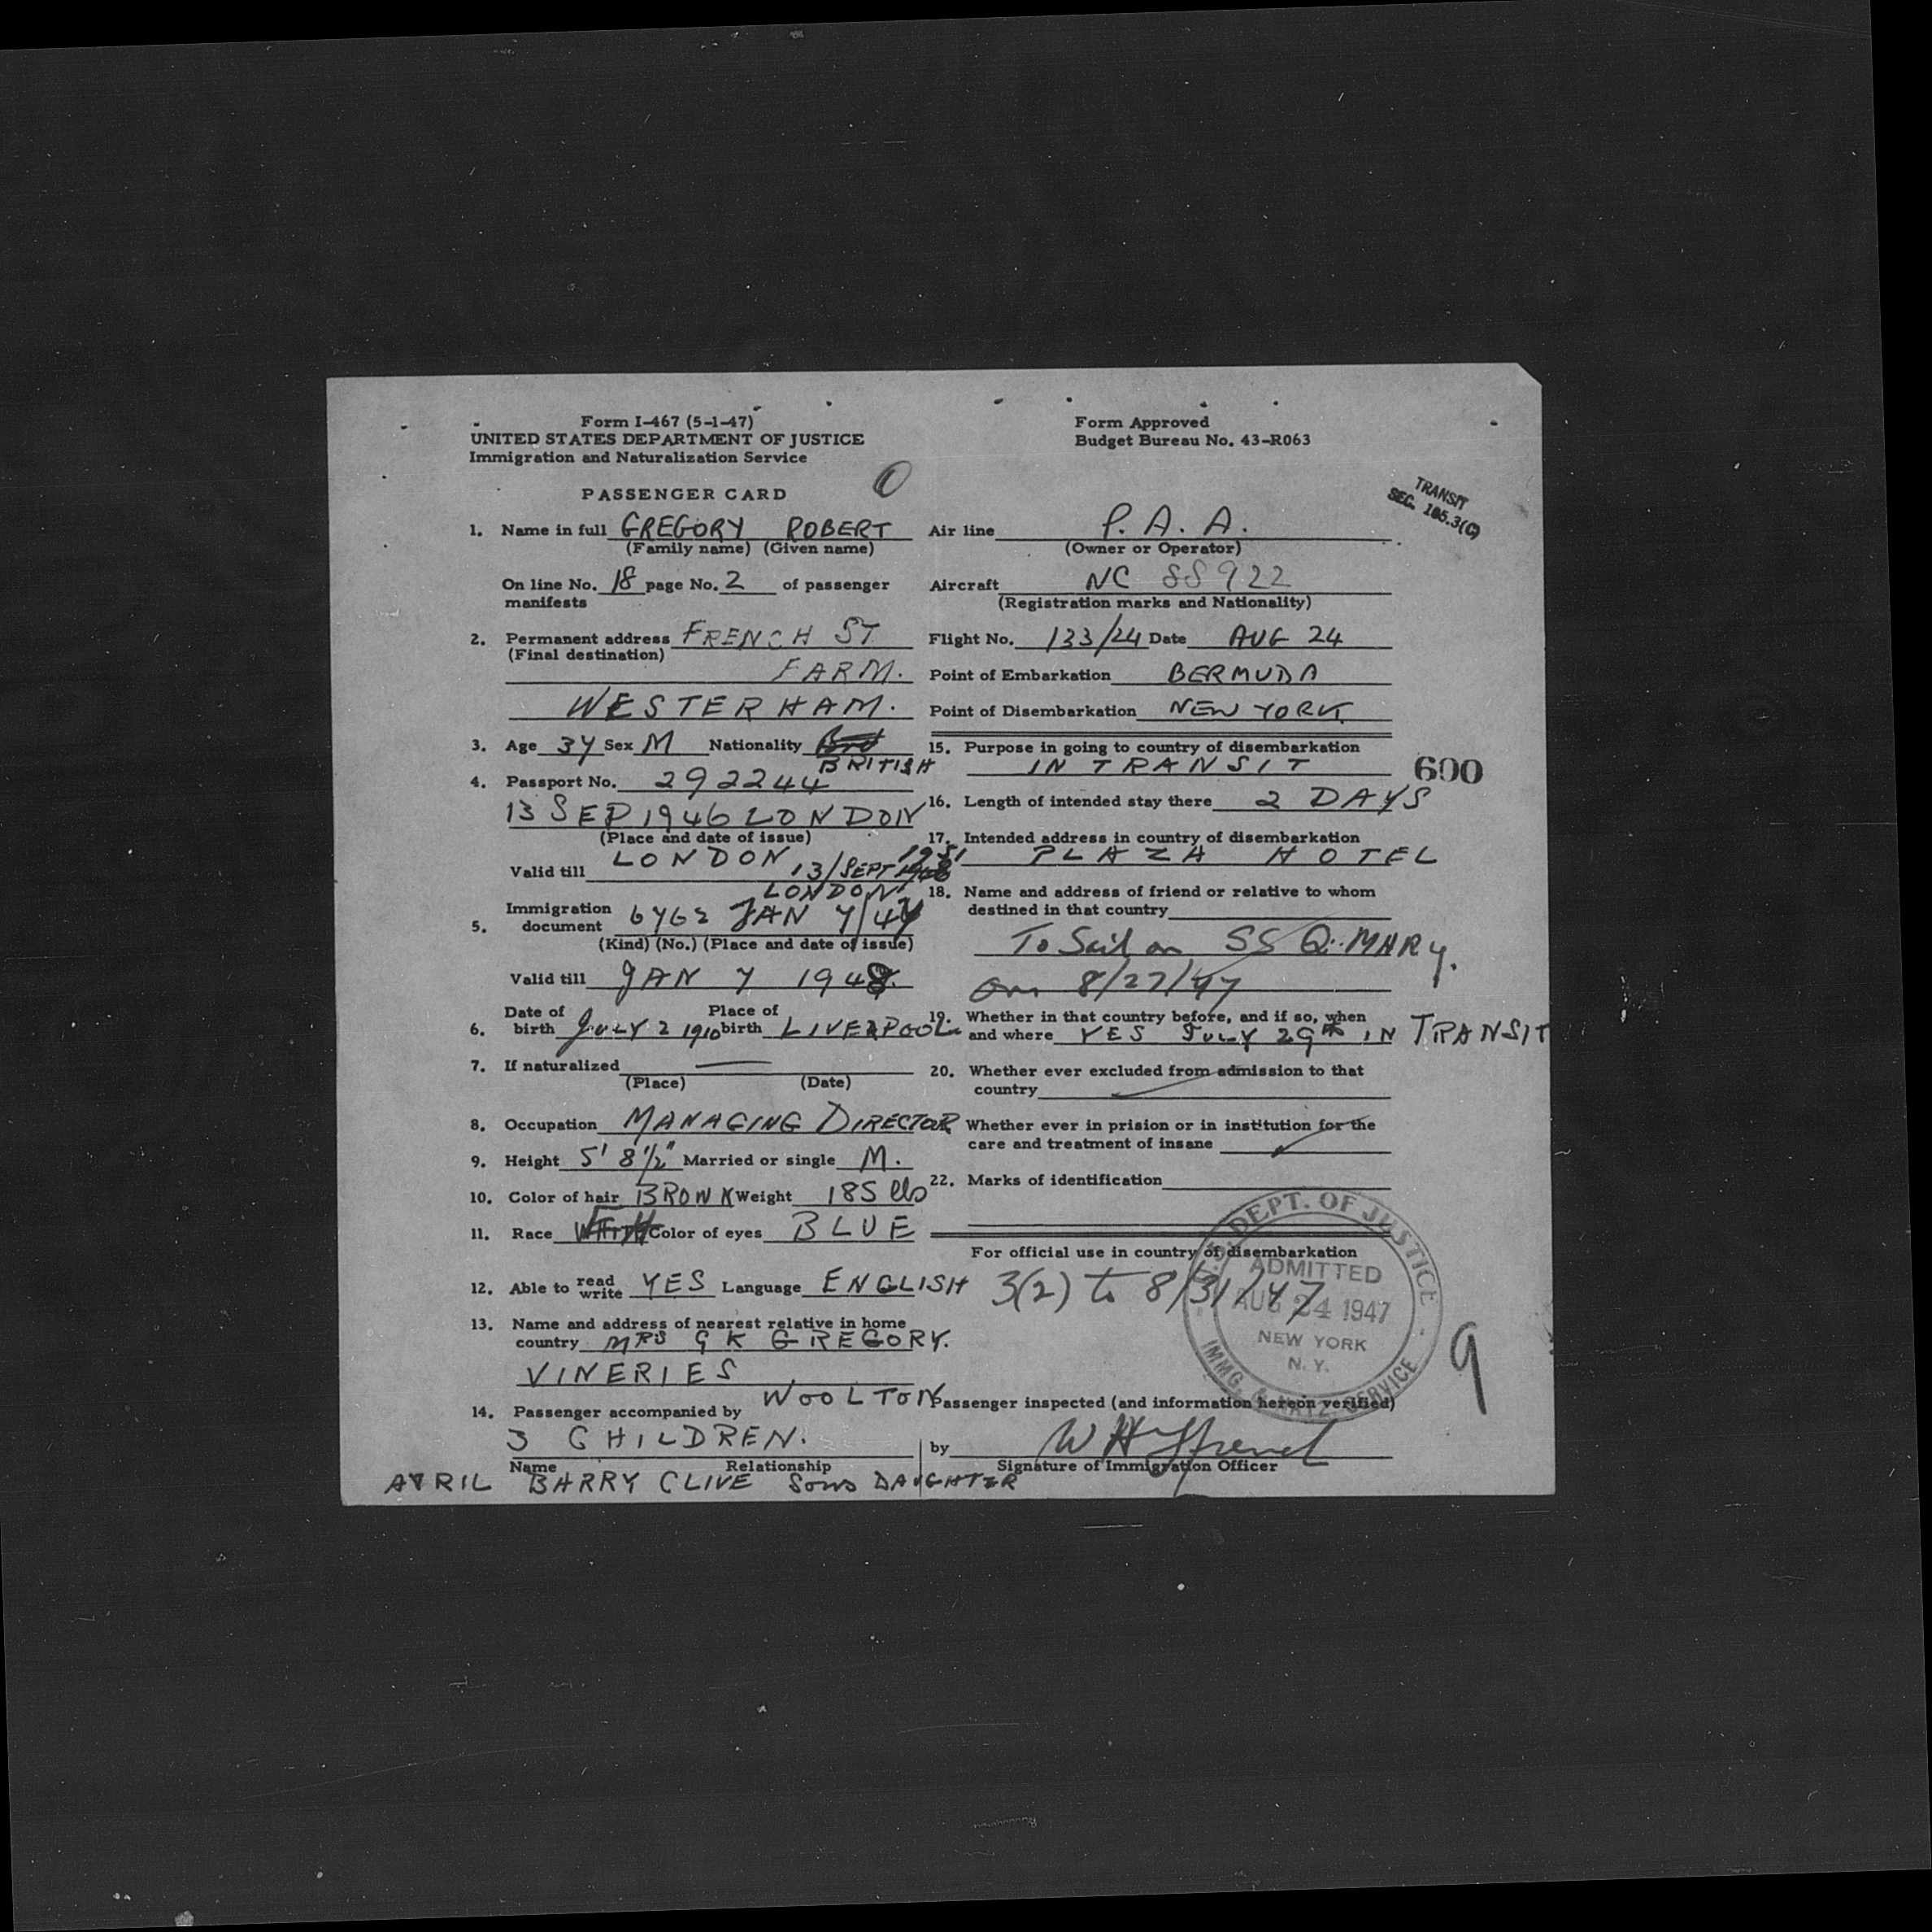 Form I-467 (5-1-47)
UNITED STATES DEPARTMENT OF JUSTICE
Immigration and Naturalization Service
Form Approved
Budget Bureau No. 43-R063
TRANSIT
SEC. 105.3(C)
PASSENGER CARD
1. Name in full GREGORY ROBERT
(Family name) (Given name)
On line No. 18 page No. 2 of passenger
manifests
2. Permanent address FRENCH ST
(Final destination)
FARM.
WESTERHAM.
3. Age 37 Sex M Nationality
BRITISH
4. Passport No. 292244
13 SEP 1946 LONDON
(Place and date of issue)
LONDON 1951
Valid till 13/SEPT
LONDON
5. Immigration document 6762 JAN 7/47
(Kind) (No.) (Place and date of issue)
Valid till JAN 7 1948
6. Date of birth JULY 2 1910 Place of birth LIVERPOOL
7. If naturalized
(Place) (Date)
8. Occupation MANAGING DIRECTOR
9. Height 5' 8 1/2" Married or single M.
10. Color of hair BROWN Weight 185 lbs
11. Race Color of eyes BLUE
12. Able to read write YES Language ENGLISH
13. Name and address of nearest relative in home
country MRS G K GREGORY.
VINERIES
WOOLTON
14. Passenger accompanied by
3 CHILDREN.
Name Relationship
AVRIL BARRY CLIVE SONS DAUGHTER
Air line P. A. A.
(Owner or Operator)
Aircraft NC 88922
(Registration marks and Nationality)
Flight No. 133/24 Date AUG 24
Point of Embarkation BERMUDA
Point of Disembarkation NEW YORK
15. Purpose in going to country of disembarkation
IN TRANSIT
600
16. Length of intended stay there 2 DAYS
17. Intended address in country of disembarkation
PLAZA HOTEL
18. Name and address of friend or relative to whom
destined in that country
To Sail on SS Q. MARY.
on 8/27/47
19. Whether in that country before, and if so, when
and where YES JULY 29th IN TRANSIT
20. Whether ever excluded from admission to that
country
Whether ever in prision or in institution for the
care and treatment of insane
22. Marks of identification
For official use in country of disembarkation
3(2) to 8/31/47
U.S. DEPT. OF JUSTICE
ADMITTED
AUG 24 1947
NEW YORK
N. Y.
IMMG. & NATZ. SERVICE
9
Passenger inspected (and information hereon verified)
by
Signature of Immigration Officer